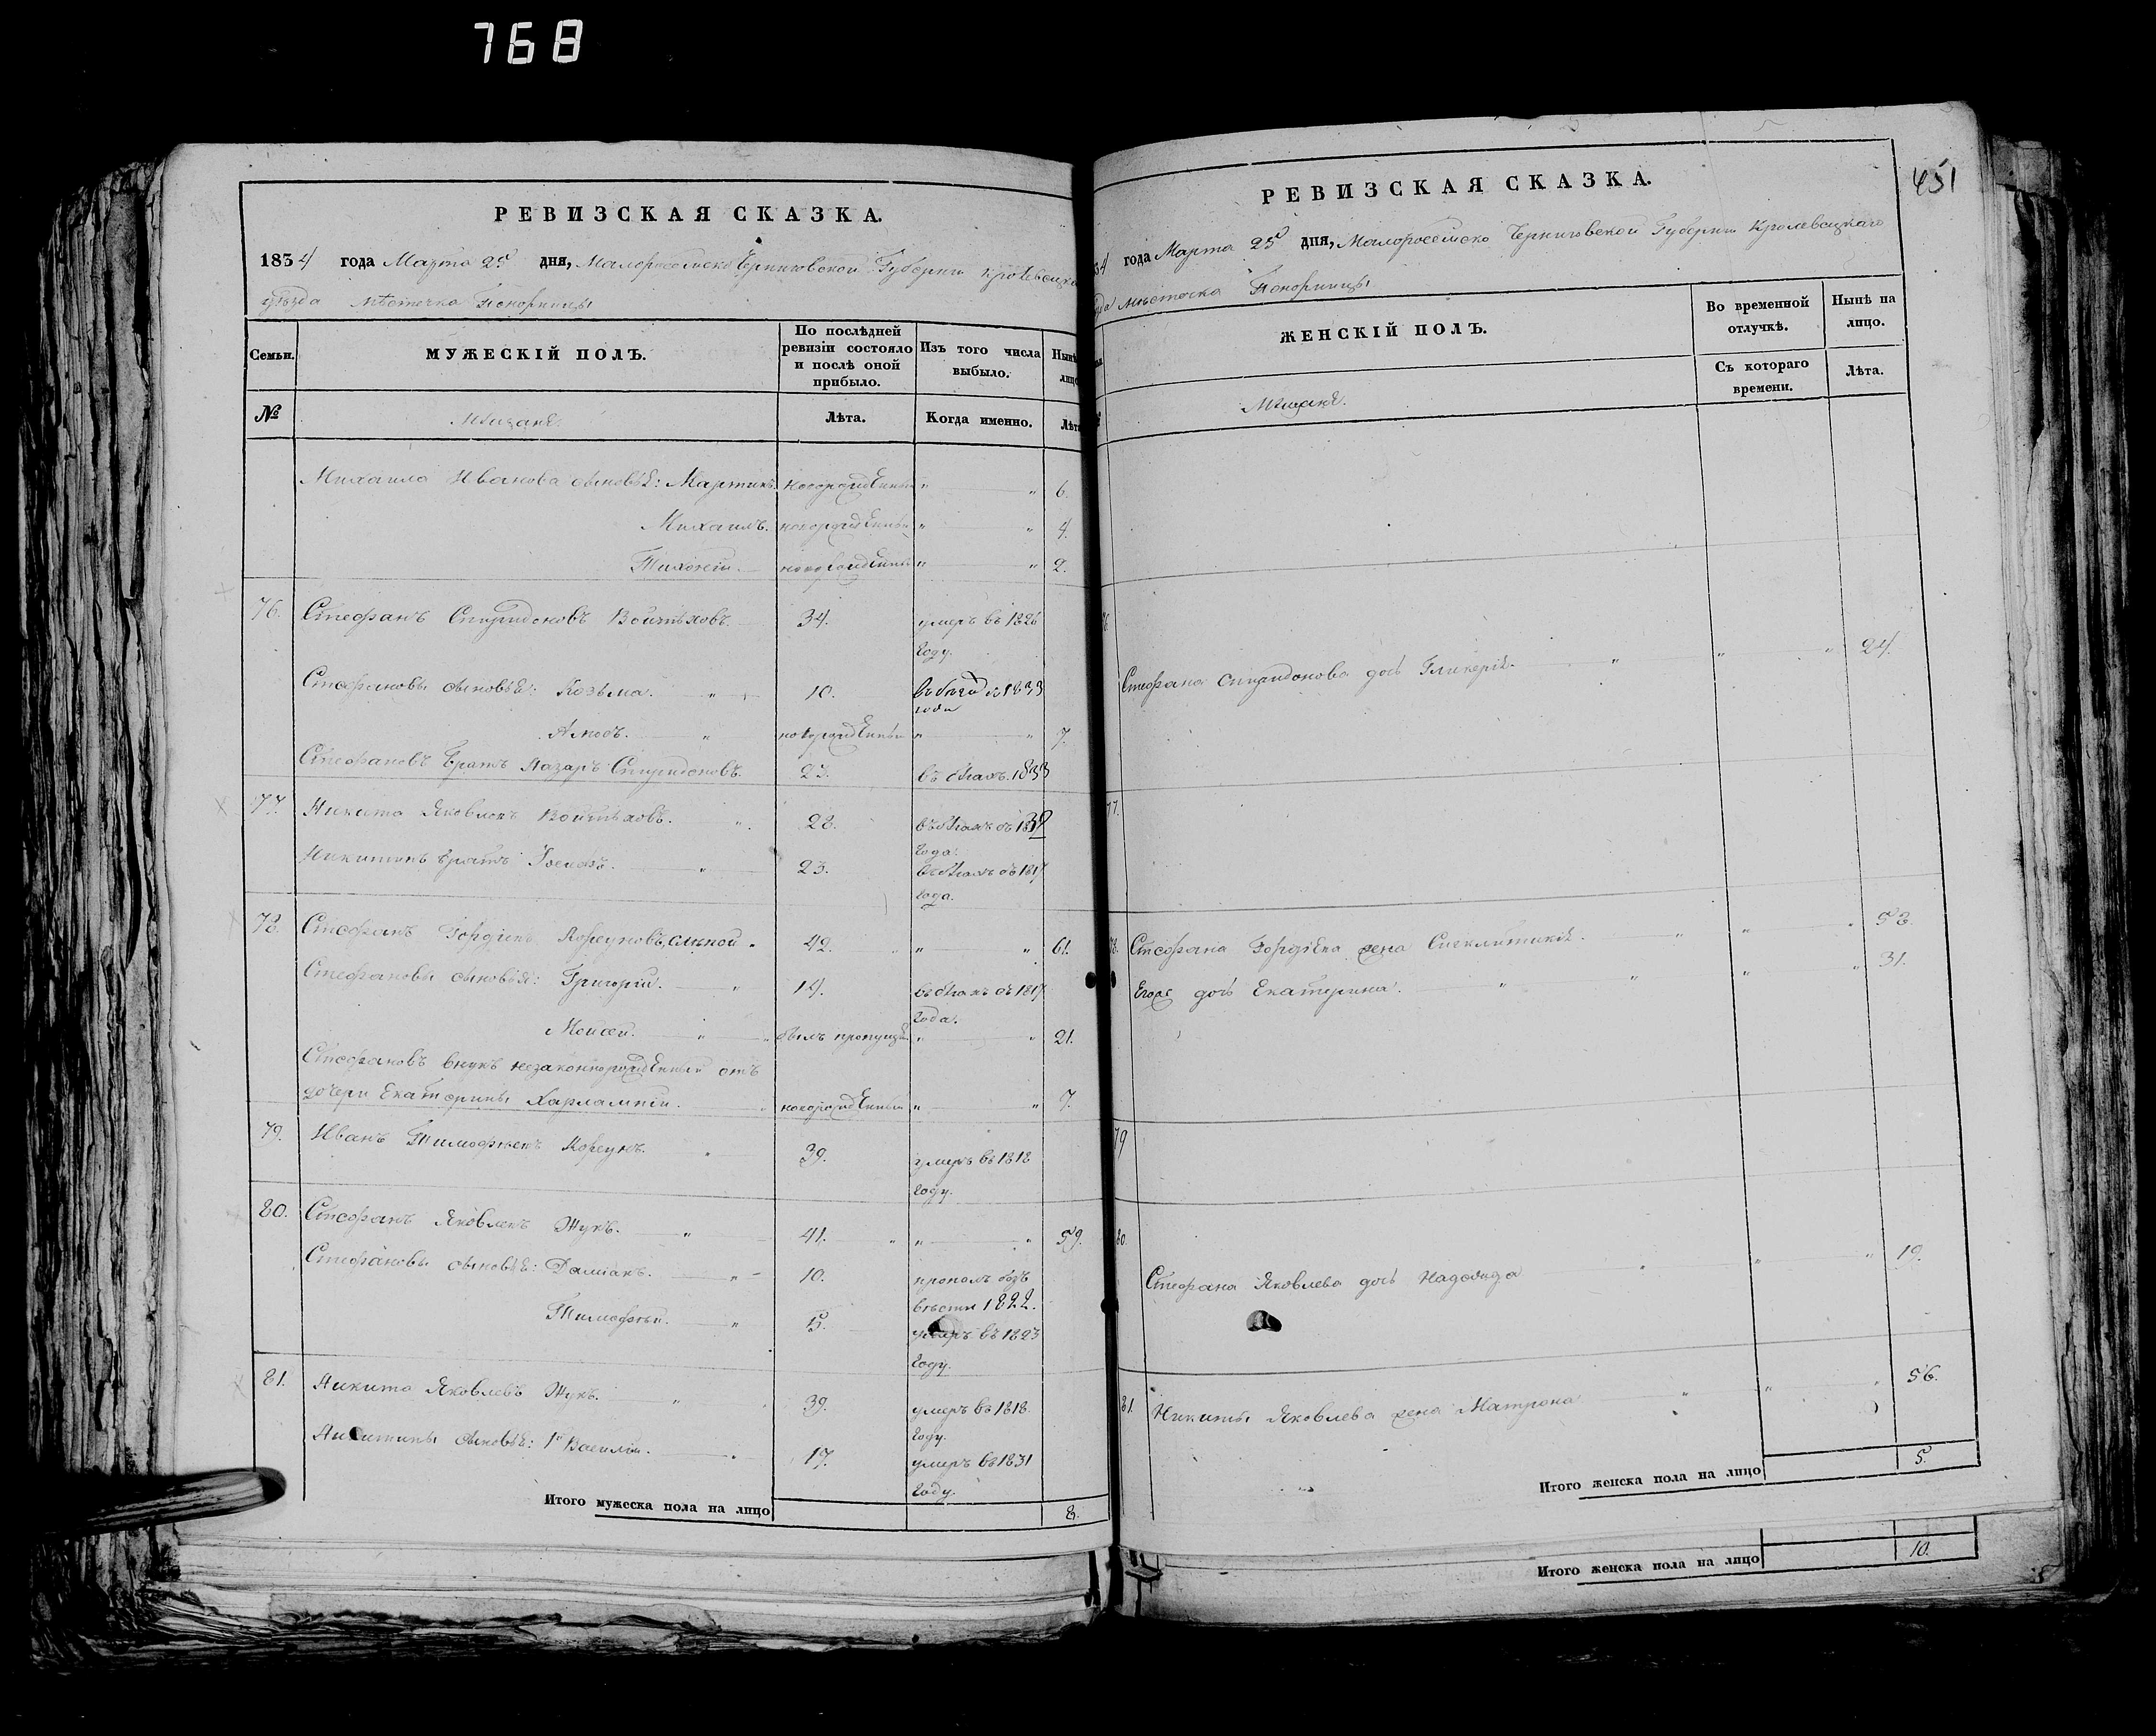 768
РЕВИЗСКАЯ СКАЗКА.
1834 года Марта 25 дня, Малороссийско Черниговской Губернии
уѣзда мѣстечка Понорницы
Семьи.
МУЖЕСКІЙ ПОЛЪ.
По послѣдней ревизіи состояло и послѣ оной прибыло.
Изъ того числа выбыло.
Нынѣ лицо
№
Мѣщане.
Лѣта.
Когда именно.
Лѣта
Михаила Иванова сыновья: Мартинъ. новорожденный " " 6.
Михаилъ. новорожденный " " 4.
новорожденный " " 2.
76. Стефанъ Спиридоновъ Войтѣховъ. 34. умеръ въ 1826
году.
Стефановы сыновья: Козьма. " 10. 1833
года
" новорожденный " " 7.
Стефановъ братъ Назаръ Спиридоновъ. 23. въ бѣгахъ. 1833
77. Никита Яковлевъ Войтѣховъ. " 28. въ бѣгахъ съ
года.
Никитинъ братъ Іосифъ. " 23. въ бѣгахъ съ 1817
года.
78. Стефанъ Гордѣевъ слѣпой " 42. " " 61.
Стефановы сыновья: Григорій. " 14. въ бѣгахъ съ 1817
года.
Мойсей. " былъ " " 21.
Стефановъ внукъ незаконнорожденный отъ
дочери Екатерины Харлампій. новорожденный " " 7.
79. Иванъ Тимофѣевъ Корсунъ. " 39. умеръ въ 1818
году.
80. Стефанъ Яковлевъ Жукъ. " 41. " " " 59.
Стефановы сыновья: Даміанъ. " 10. пропалъ безъ
вѣсти 1822.
Тимофѣй. " 5. умеръ въ 1823
году.
81. Никита Яковлевъ Жукъ. " 39. умеръ въ 1818
году.
Никитины сыновья: 1й Василій. " 17. умеръ въ 1831
году.
Итого мужеска пола на лицо 8.
451
РЕВИЗСКАЯ СКАЗКА.
34 года Марта 25 дня, Малороссійско Черниговской Губерніи Кролевецкаго
мѣстечка Понорницы
ЖЕНСКІЙ ПОЛЪ.
Во временной отлучкѣ.
Нынѣ на лицо.
Съ котораго времени.
Лѣта.
Мѣщане.
76
Стефана Спиридонова дочь Гликерія. " " " 24.
77.
78. Стефана Гордѣева жена " " " 58.
дочь Екатерина. " " " " 31.
79
80.
Стефана Яковлева дочь " " " 19.
81. Никиты Яковлева жена Матрона " " " 56.
Итого женска пола на лицо 5.
Итого женска пола на лицо 10.